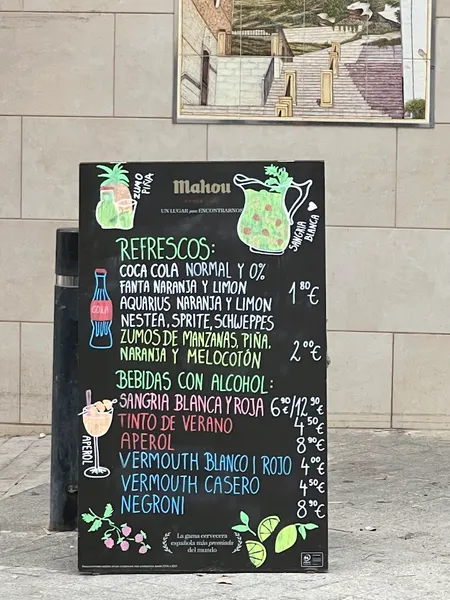 ZUMO PIÑA
Mahou
UN LUGAR para ENCONTRARNOS
SANGRIA BLANCA
REFRESCOS:
COCA COLA NORMAL Y 0%
FANTA NARANJA Y LIMON
AQUARIUS NARANJA Y LIMON
NESTEA, SPRITE, SCHWEPPES
1'80 €
ZUMOS DE MANZANAS, PIÑA,
NARANJA Y MELOCOTÓN 2'00 €
COLA
BEBIDAS CON ALCOHOL:
SANGRIA BLANCA Y ROJA 6'90/12'90 €
TINTO DE VERANO 4'50 €
APEROL 8'90 €
VERMOUTH BLANCO | ROJO 4'00 €
VERMOUTH CASERO 4'50 €
NEGRONI 8'90 €
APEROL
La gama cervecera
española más premiada
del mundo